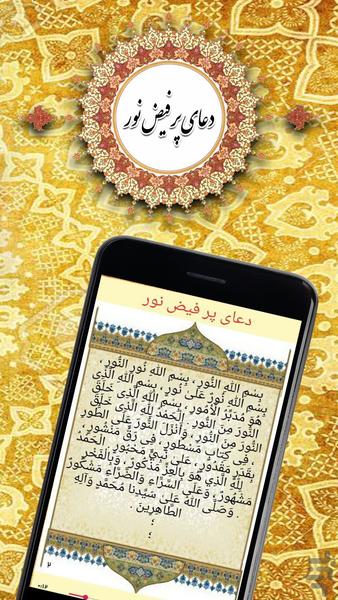 دعای پر فیض نور
دعای پر فیض نور
بِسْمِ اللَّهِ النُّورِ ، بِسْمِ اللَّهِ نُورِ النُّورِ ،
بِسْمِ اللَّهِ نُورٌ عَلَىٰ نُورٍ ، بِسْمِ اللَّهِ الَّذِي
هُوَ مُدَبِّرُ الْأُمُورِ ، بِسْمِ اللَّهِ الَّذِي خَلَقَ
النُّورَ مِنَ النُّورِ . الْحَمْدُ لِلَّهِ الَّذِي خَلَقَ
النُّورَ مِنَ النُّورِ ، وَأَنْزَلَ النُّورَ عَلَى الطُّورِ
، فِي كِتَابٍ مَسْطُورٍ ، فِي رَقٍّ مَنْشُورٍ ،
بِقَدَرٍ مَقْدُورٍ ، عَلَىٰ نَبِيٍّ مَحْبُورٍ . الْحَمْدُ
لِلَّهِ الَّذِي هُوَ بِالْعِزِّ مَذْكُورٌ ، وَبِالْفَخْرِ
مَشْهُورٌ ، وَعَلَى السَّرَّاءِ وَالضَّرَّاءِ مَشْكُورٌ
وَصَلَّى اللَّهُ عَلَىٰ سَيِّدِنَا مُحَمَّدٍ وَآلِهِ
الطَّاهِرِينَ .
؛
؛
۲